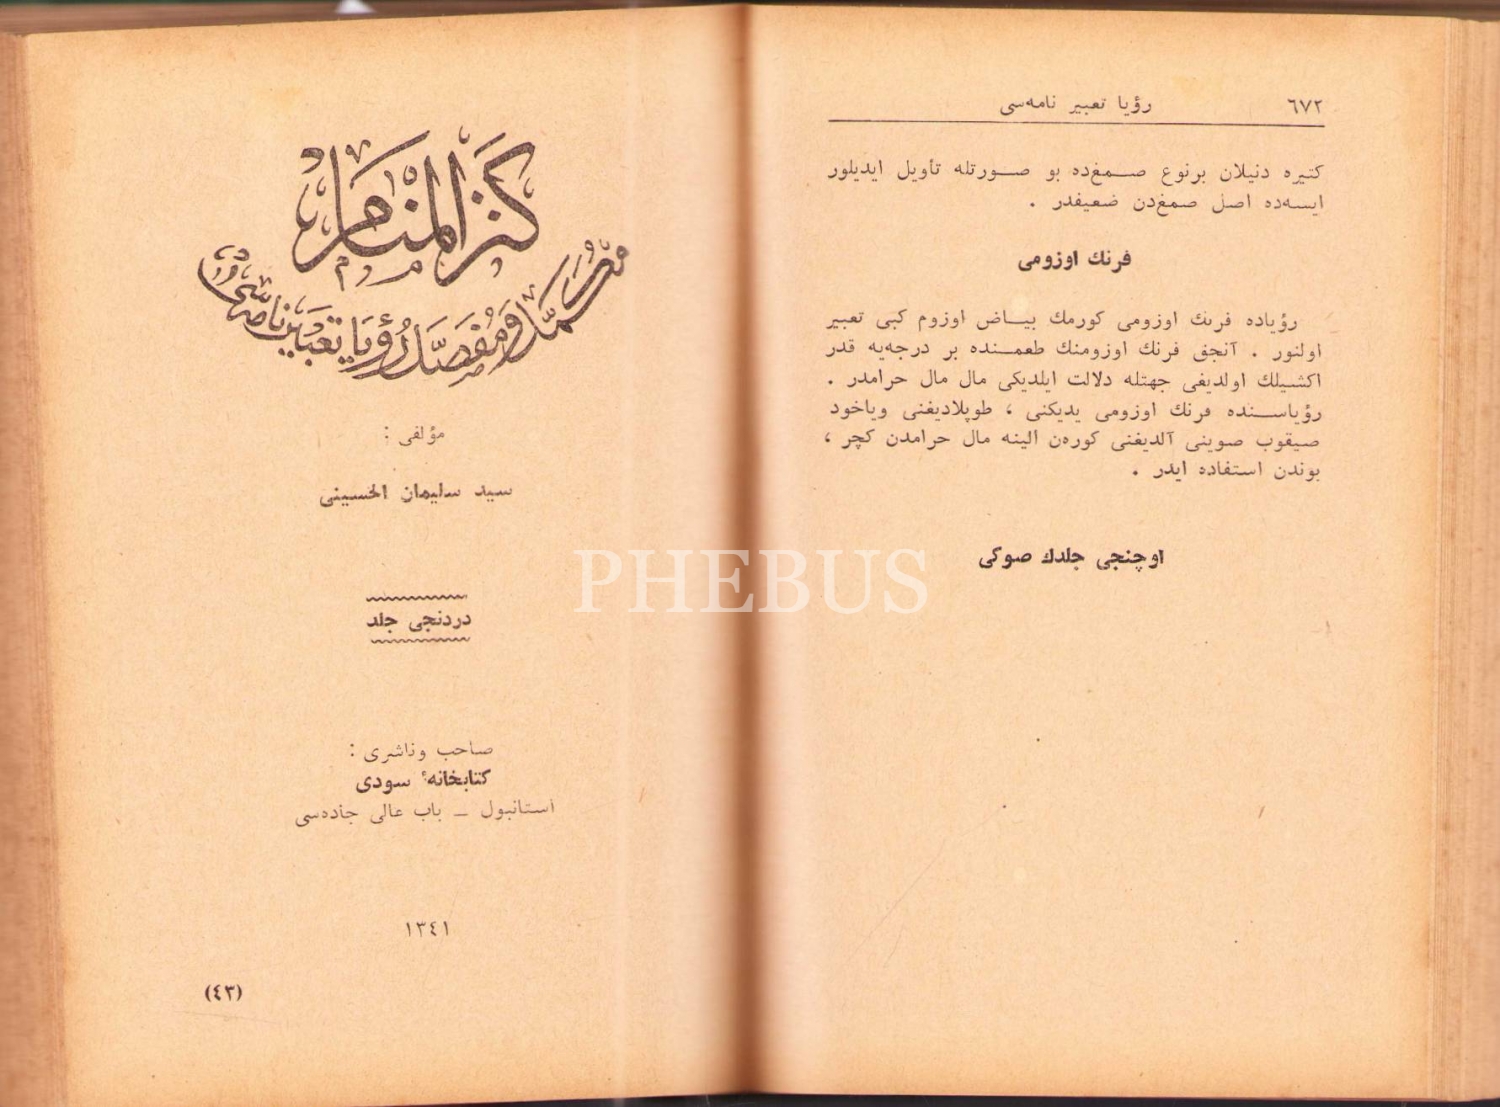 ٦٧٢ رؤیا تعبیر نامه‌سی
كتیره دنیلان برنوع صمغ‌ده بو صورتله تأویل ایدیلور
ایسه‌ده اصل صمغ‌دن ضعیفدر .
فرنك اوزومی
رؤیاده فرنك اوزومی كورمك بیاض اوزوم كبی تعبیر
اولنور . آنجق فرنك اوزومنك طعمنده بر درجه‌یه قدر
اكشیلك اولدیغی جهتله دلالت ایلدیكی مال مال حرامدر .
رؤیاسنده فرنك اوزومی یدیكنی ، طوپلادیغنی ویاخود
صیقوب صوینی آلدیغنی كوره‌ن الینه مال حرامدن كچر ،
بوندن استفاده ایدر .
اوچنجی جلدك صوكی
كنز المنام
مكمل و مفصل رؤیا تعبیرنامه‌سی
مؤلفی :
سید سلیمان الحسینی
دردنجی جلد
صاحب وناشری :
كتابخانهٔ سودی
استانبول ــ باب عالی جاده‌سی
١٣٤١
(٤٣)
PHEBUS